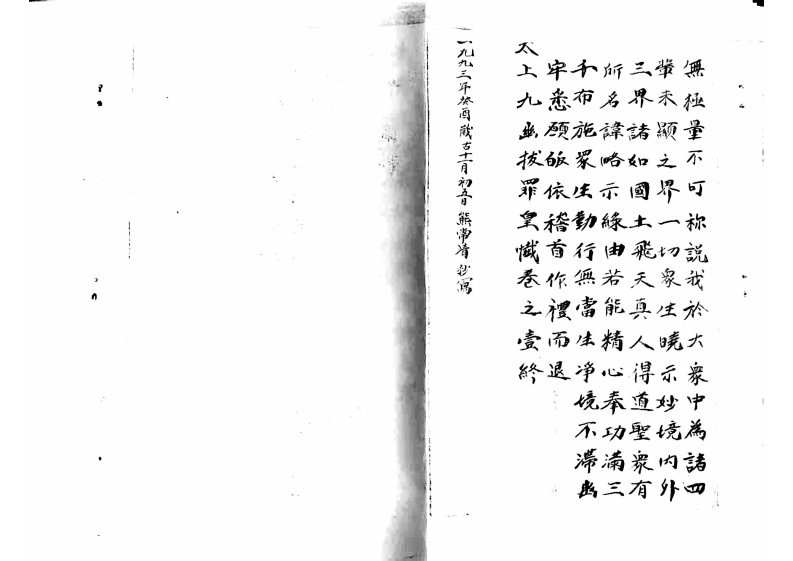 無極量不可称說我於大衆中為諸四
輩未顯之界一切衆生曉示妙境内外
三界諸如國土飛天真人得道聖衆有
所名諱略示緣由若能精心奉功滿三
千布施衆生勤行無當生净境不滯幽
牢悉願皈依稽首作禮而退
太上九幽拔罪皇懺卷之壹終
一九九三年癸酉歲古十一月初五日熊常青抄寫